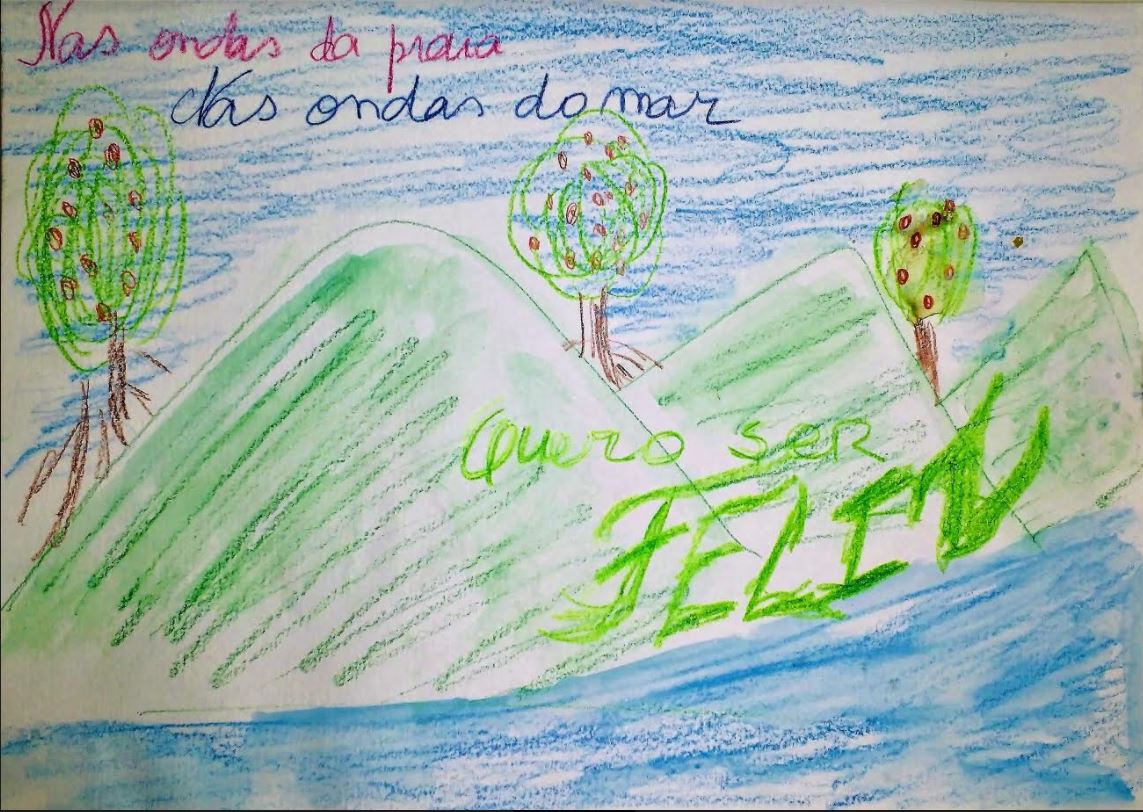 Nas ondas da praia
Nas ondas do mar
Quero ser
FELIZ